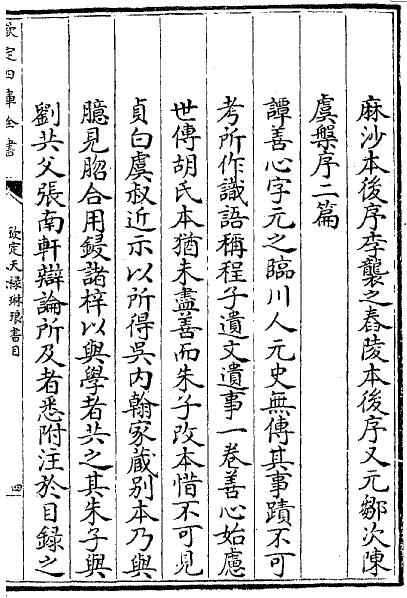 麻沙本後序李襲之舂陵本後序又元鄒次陳
虞槃序二篇
譚善心字元之臨川人元史無傳其事蹟不可
考所作識語稱程子遺文遺事一卷善心始慮
世傳胡氏本猶未盡善而朱子改本惜不可見
貞白虞叔近示以所得吳内翰家蔵别本乃與
臆見脗合用鋟諸梓以與學者共之其朱子與
劉共父張南軒辯論所及者悉附注於目録之
欽定四庫全書
欽定天禄琳琅書目
四